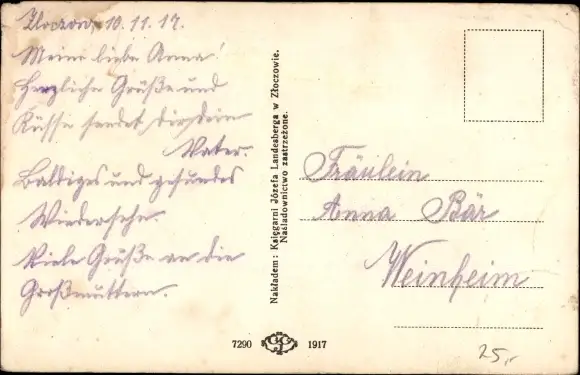 Złoczow, 10.11.17.
Meine liebe Anna!
Herzliche Grüße und
Küsse sendet dir dein
Vater.
Baldiges und gesundes
Wiedersehn.
Viele Grüße an die
Großmuttern.
Nakładem: Księgarni Józefa Landesberga w Złoczowie.
Naśladownictwo zastrzeżone.
Fräulein
Anna Bär
Weinheim
7290 1917
25,-